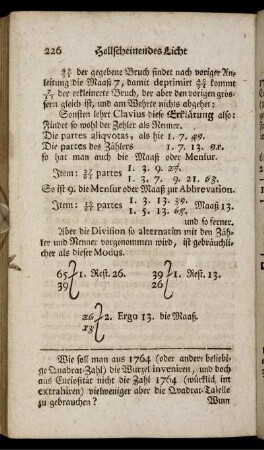 226 Hellscheinendes Licht
der gegebene Bruch findet nach voriger An-
leitung die Maaß 7, damit deprimirt kommt
der erkleinerte Bruch, der aber den vorigen grös-
sern gleich ist, und am Wehrte nichts abgehet:
Sonsten lehrt Clavius diese Erklärung also:
Findet so wohl der Zehler als Renner.
Die partes aliqvotas, als hie 1. 7. 49.
Die partes des Zählers 1. 7. 13. 91.
so hat man auch die Maaß oder Mensur.
Item: 27/63 partes 1. 3. 9. 27.
1. 3. 7. 9. 21. 63.
So ist 9. die Mensur oder Maaß zur Abbrevation.
Item: 39/65 partes 1. 3. 13. 39. Maaß 13.
1. 5. 13. 65.
und so ferner.
Aber die Division so alternatim mit den Zäh-
ler und Renner vorgenommen wird, ist gebräuchli-
cher als dieser Modus.
65 1. Rest. 26. 39 1. Rest. 13.
39 26
26 2. Ergo 13. die Maaß.
13
Wie soll man aus 1764 (oder ander beliebi-
ge Quadrat-Zahl) die Wurzel inveniren, und doch
aus Curiosität nicht die Zahl 1764 (würklich im
extrahiren) vielweniger aber die Qvadrat-Tabelle
zu gebrauchen?
Wann